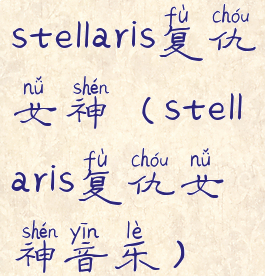 fù chóu
stellaris复仇
nǚ shén
女神（stell
fù chóu nǚ
aris复仇女
shén yīn lè
神音乐）